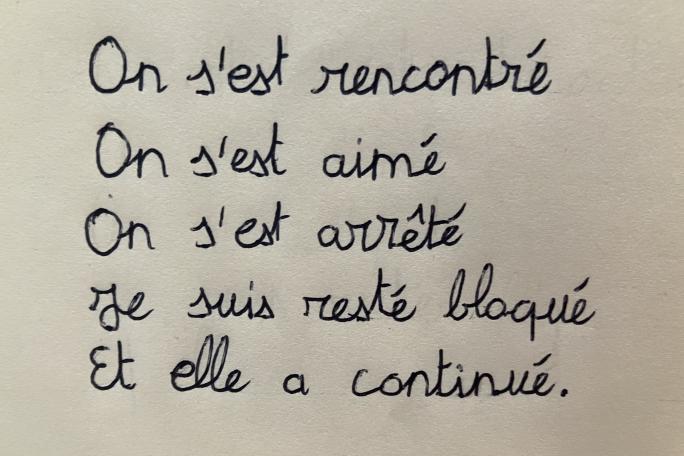 On s'est rencontré
On s'est aimé
On s'est arrêté
Je suis resté bloqué
Et elle a continué.